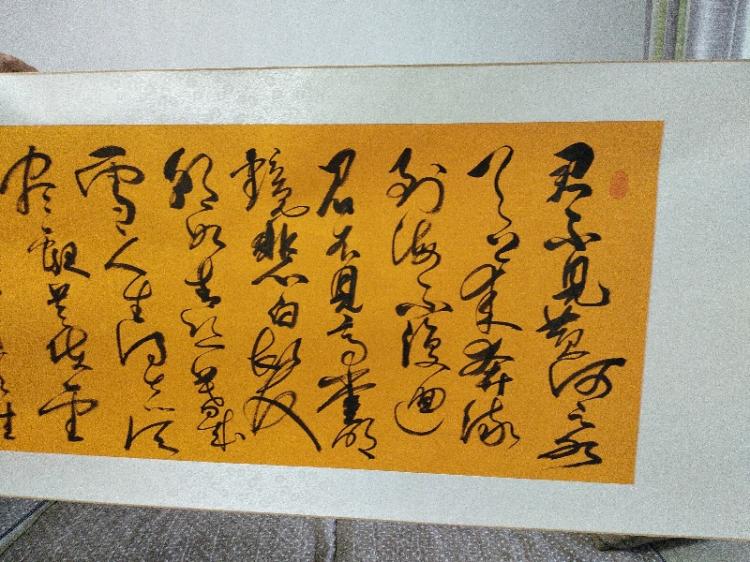 君不見黃河之水
天上來奔流
到海不復迴
君不見高堂明
鏡悲白髮
朝如青絲暮成
雪人生得意須
盡歡莫使金
生